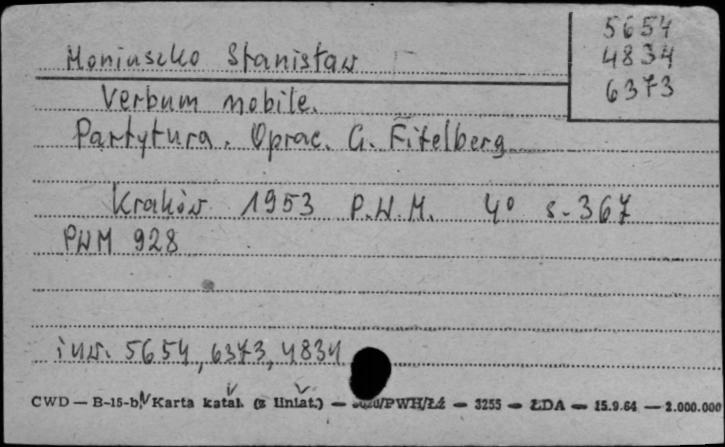 5654
4834
6373
Moniuszko Stanisław
Verbum nobile.
Partytura. Oprac. G. Fitelberg
Kraków 1953 P.W.M. 4° s. 367
PWM 928
inw. 5654, 6373, 4834
CWD — B-15-b Karta katal. (z liniat.) — /PWH/Łź — 3255 — ŁDA — 15.9.64 — 2.000.000